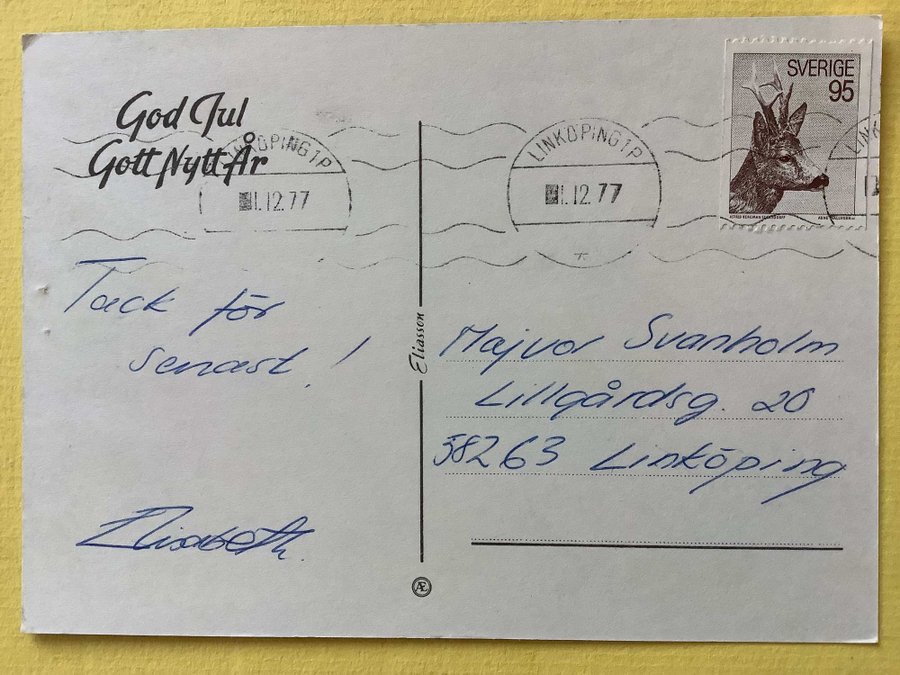 God Jul
Gott Nytt År
LINKÖPING 1 P
1.12.77
LINKÖPING 1 P
1.12.77
SVERIGE
95
LINK
Tack för
senast!
Elisabeth.
Eliasson
Majvor Svanholm
Lillgårdsg. 20
58263 Linköping
Æ